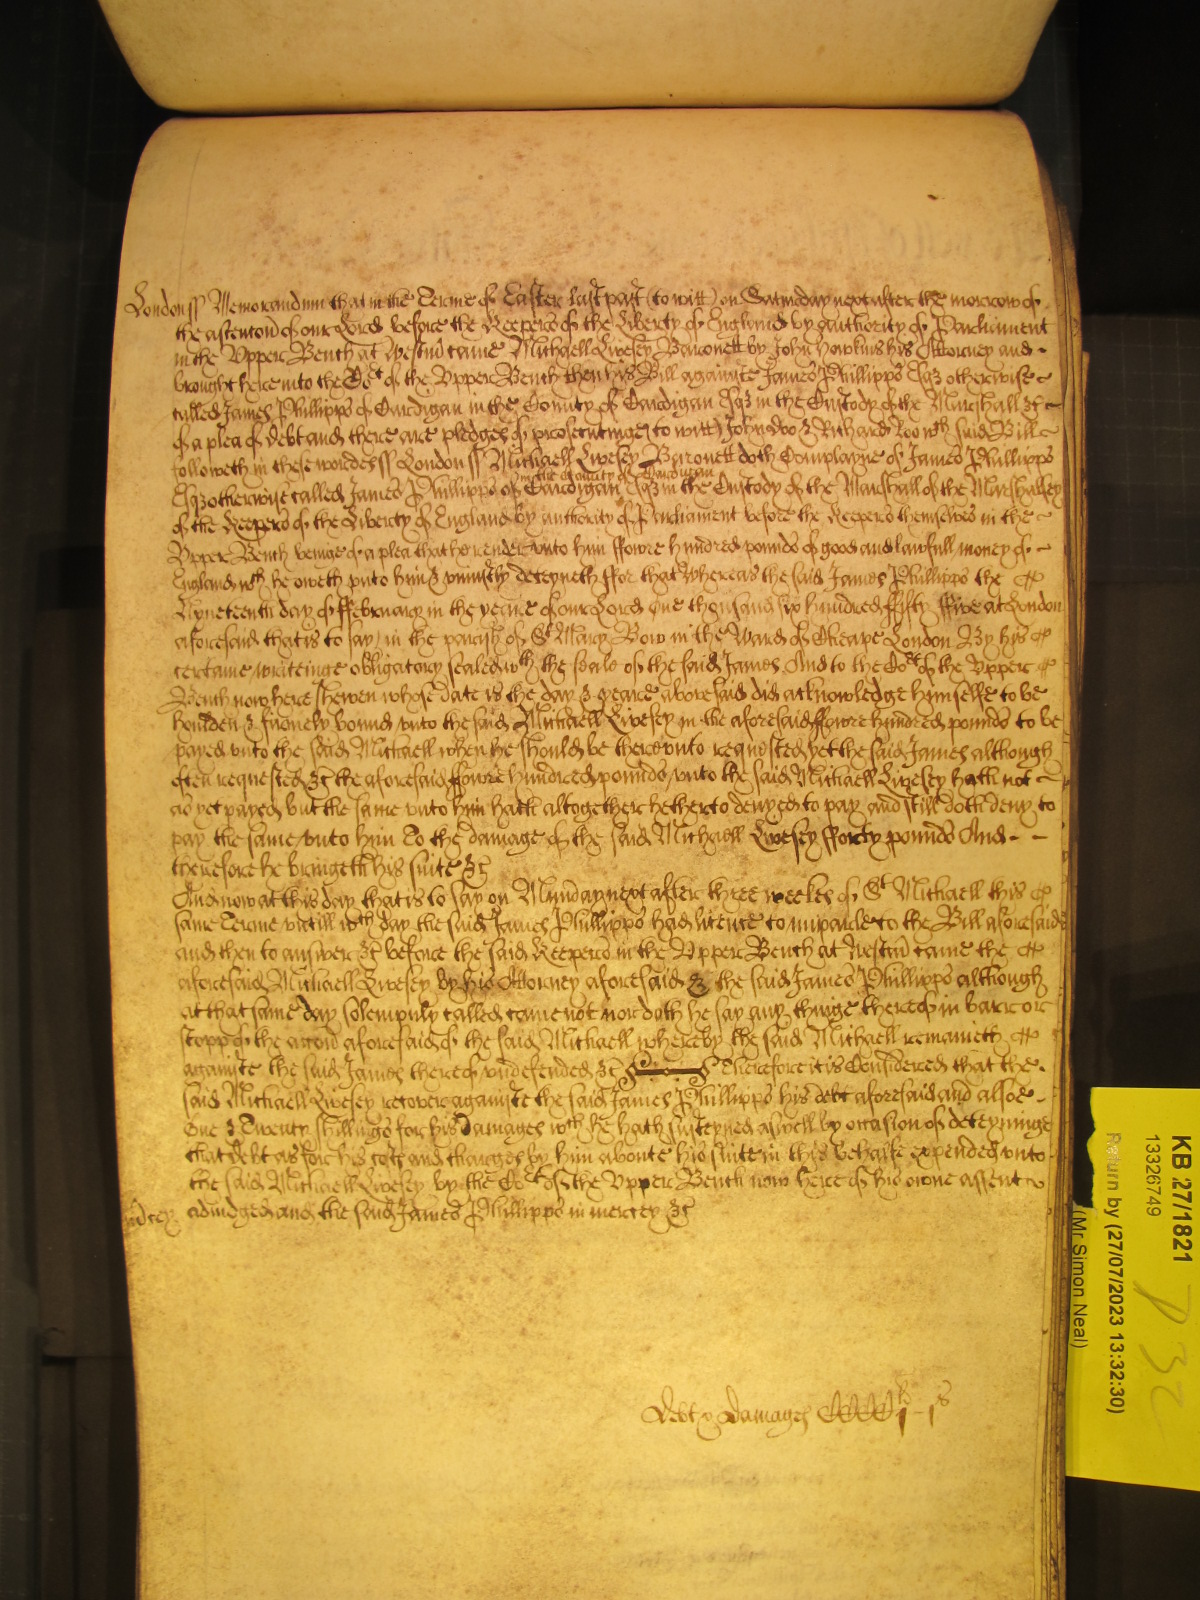 London ss Memorandum that in the Terme of Easter last past (to witt) on Saturday next after the morrow of
the ascention of our Lord before the Keepers of the Liberty of England by authority of Parliament
in the Upper Bench at Westm came Michaell Livesey Baronett by John Hawkins his Attorney and
brought here into the Cort of the Upper Bench then his Bill againste James Phillipps Esqz otherwise
called James Phillipps of Cardigan in the County of Cardigan Esqz in the Custody of the Marshall &c
of a plea of debt and there are pledges of prosecutinge (to witt) John Doo & Richard Roo wch said Bill
followeth in these wordes ss London ss Michaell Livesey Baronett doth Complayne of James Phillipps
in the County of Cardigan
Esqz otherwise called James Phillipps of Cardigan Esqz in the Custody of the Marshall of the Marshalsey
of the Keepers of the Liberty of England by authority of Parliament before the Keepers themselves in the
Upper Bench beinge of a plea that he render unto him ffowre hundred pounds of good and lawfull money of
England wch he oweth unto him & uniustly deteyneth ffor that Whereas the said James Phillipps the
Nyneteenth day of ffebruary in the yeare of our Lord One thousand six hundred ffifty ffive at London
aforesaid that is to say in the parish of St Mary Bow in the Ward of Cheape London By his
certaine writeinge obligatory sealed wth the seale of the said James And to the Cort of the Upper
Bench now here shewen whose date is the day & yeare abovesaid did acknowledge himselfe to be
houlden & firmely bound unto the said Michaell Livesey in the aforesaid ffowre hundred pounds to be
payed unto the said Michaell when he should be thereunto requested yet the said James although
often requested &c the aforesaid ffowre hundred pounds unto the said Michaell Livesey hath not
as yet payed but the same unto him hath altogether hetherto denyed to pay and still doth deny to
pay the same unto him To the damage of the said Michaell Livesey fforty pounds And
therefore he bringeth his suite &c
And now at this day that is to say on Munday next after three weekes of St Michaell this
same Terme untill wch day the said James Phillipps had licence to imparle to the Bill aforesaid
and then to answer &c before the said Keepers in the Upper Bench at Westm came the
aforesaid Michaell Livesey by his Attorney aforesaid & the said James Phillipps although
at that same day solempnly called came not nor doth he say any thinge thereof in barr or
stopp of the accon aforesaid of the said Michaell whereby the said Michaell remaineth
againste the said James thereof undefended &c Therefore it is Considered that the
said Michaell Livesey recover againste the said James Phillipps his debt aforesaid and alsoe
One & Twenty shillings for his damages wch he hath susteyned aswell by occasion of deteyninge
that debt as for his costs and charges by him aboute his suite in this behalfe expended unto
the said Michaell Livesey by the Cort of the Upper Bench now here of his owne assent
adiudged and the said James Phillipps in mercey &c
Debt & Damages CCCCli-js
KB 27/1821
13326749
Return by (27/07/2023 13:32:30)
(Mr Simon Neal)